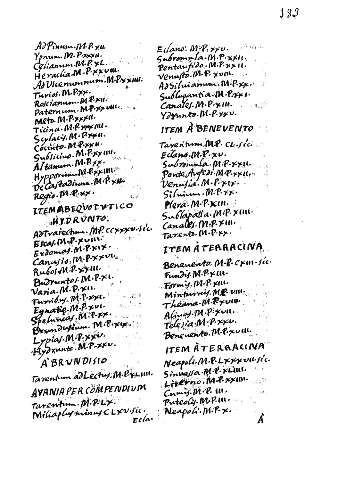 133
Ad Pinum. M.P.XII.
Ypnum. M.P.XXXII.
Cælianum. M.P.XL.
Heraclia M.P.XXVIII.
Ad Vicennummum. M.P.XXIIII.
Turios. M.P.XX.
Roscianum. M.P.XII.
Paternum. M.P.XXVII.
Meto M.P.XXXII.
Tacina. M.P.XXXIIII.
Scylacio. M.P.XXII.
Cocinto. M.P.XXII.
Subsicino. M.P.XXIIII.
Altanum. M.P.XX.
Hipporum. M.P.XXIIII.
Decastadium. M.P.XX.
Regio. M.P.XX.
ITEM AB EQUOTUTICO
HYDRUNTO.
Ad Traiectum. M.P.CCXXXV. sic.
Ecas. M.P.XVIII.
Erdonias. M.P.XIX.
Canusio. M.P.XXVI.
Rubos M.P.XXIII.
Budruntus M.P.XI.
Varia. M.P.XII.
Turribus. M.P.XXI.
Egnatia. M.P.XVI.
Speluncas. M.P.XX.
Brundusium. M.P.XIX.
Lypias. M.P.XXV.
Hydrunto. M.P.XXV.
A BRUNDISIO
Tarentum ad Lectus. M.P.XLIIII.
A VANIA PER COMPENDIUM
Tarentum. M.P.LX.
Miliaplus minus CLXV. sic.
Ecla.
Eclano. M.P.XXV.
Subromula. M.P.XXII.
Pontaufido. M.P.XXII.
Venusio. M.P.XVIII.
Ad Silvianum. M.P.XX.
Sublupatia. M.P.XXI.
Canales. M.P.XIII.
Ydrunto. M.P.XXV.
ITEM À BENEVENTO
Tarentum. M.P. CL. sic.
Eclano. M.P.XV.
Subromula. M.P.XXII.
Ponte Aufidi M.P.XXII.
Venusia. M.P.XIX.
Silvium. M.P.XX.
Plera. M.P.XIII.
Sublapatia. M.P.XIIII.
Canales. M.P.XIII.
Tarento M.P.XX.
ITEM À TERRACINA
Benevento. M.P.CXIII. sic.
Fundis M.P.XIII.
Formis. M.P.XIII.
Minturnis M.P.VIIII.
Theano. M.P.XVIII.
Alifas M.P.XVII.
Telesia M.P.XXV.
Benevento. M.P.XVIII.
ITEM À TERRACINA
Neapoli. M.P.LXXXVII. sic.
Sinuessa M.P.XLIIII.
Literno. M.P.XXIIII.
Cumis. M.P.III.
Puteolis M.P.III.
Neapoli. M.P.X.
A